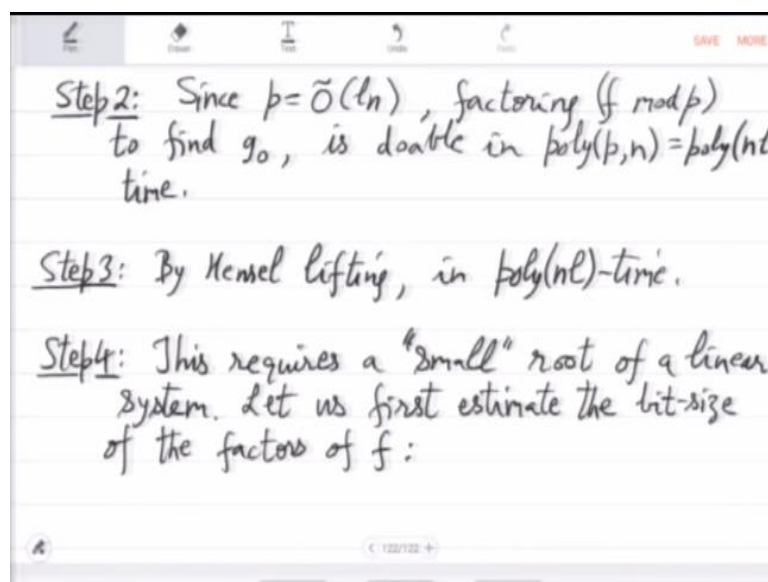 Pen Eraser Text Undo Redo SAVE MORE
Step2: Since p=Õ(ln), factoring (f mod p)
to find g₀, is doable in poly(p,n)=poly(nl
time.
Step3: By Hensel lifting, in poly(nl)-time.
Step4: This requires a "small" root of a linear
system. Let us first estimate the bit-size
of the factors of f:
122/122